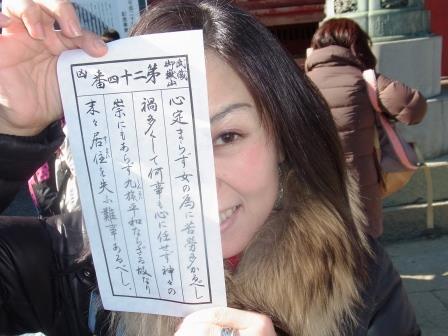 武蔵
御嶽山
第二十四番
凶
心定まらす女の為に苦労多かるべし
禍多くして何事も心に任せす神々の
祟にもあらす九族平和ならざる故なり
末々居住を失ふ難事あるべし、